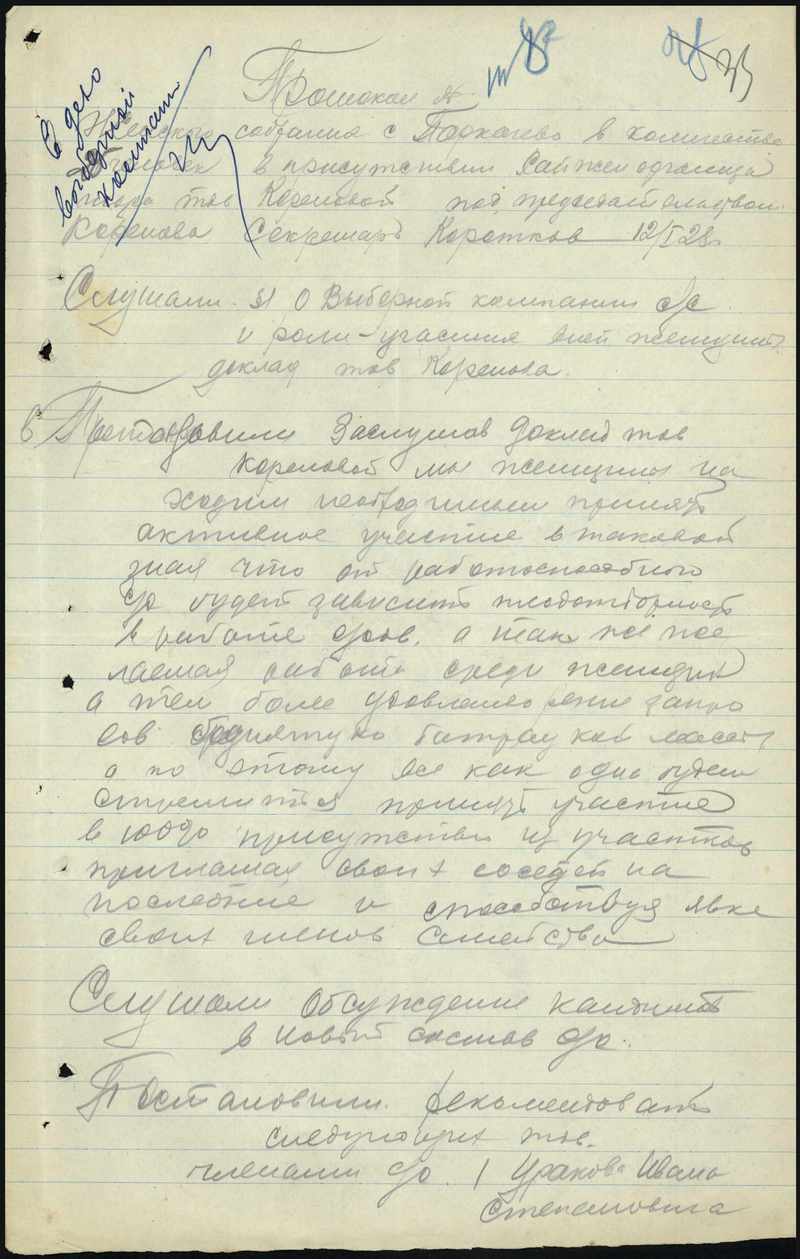 В дело
выборной
кампании
33
Протокол №
Женского собрания с Паркачево в количестве
человек в присутствии Райженорганиза
тора тов Кореповой под председательством
Корепова Секретарь Коротков 12/I 28 г.
Слушали. §1 О Выборной компании с/с
и роли-участия в ней женщин.
доклад тов Корепова.
Постановили Заслушав доклад тов
Кореповой мы женщины на
ходим необходимым принять
активное участие в таковой
зная что от работоспособного
с/с будет зависить плодотворность
в работе с/сов. а так же же
лаемая работа среди женщин
а тем более удовлетворение запро
сов бедняцко батрацкой массы
а по этому все как одна будем
стремится принять участие
в 100% присутствии из участков
приглашая своих соседей на
последние и способствуя явке
своих членов семейства
Слушали Обсуждение кандидатов
в новый состав с/с.
Постановили. рекомендовать
следующих тов.
членами с/с. 1 Уракова Ивана
Степановича